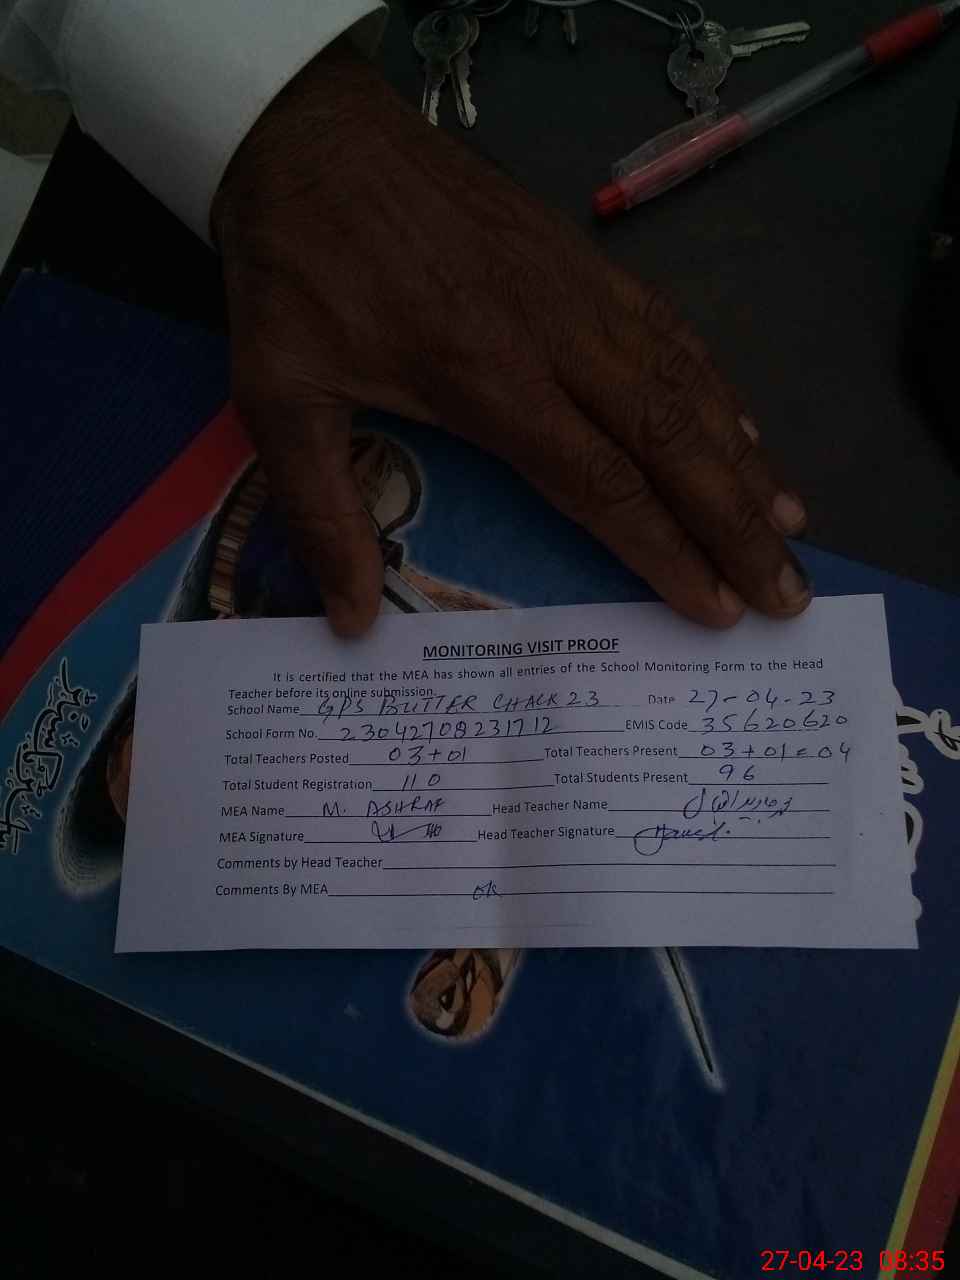 MONITORING VISIT PROOF
It is certified that the MEA has shown all entries of the School Monitoring Form to the Head
Teacher before its online submission.
School Name GPS BUTTER CHACK 23 Date 27-04-23
School Form No. 23042708231712 EMIS Code 35620620
Total Teachers Posted 03+01 Total Teachers Present 03+01=04
Total Student Registration 110 Total Students Present 96
MEA Name M. ASHRAF Head Teacher Name
MEA Signature Head Teacher Signature
Comments by Head Teacher
Comments By MEA ok
27-04-23 08:35